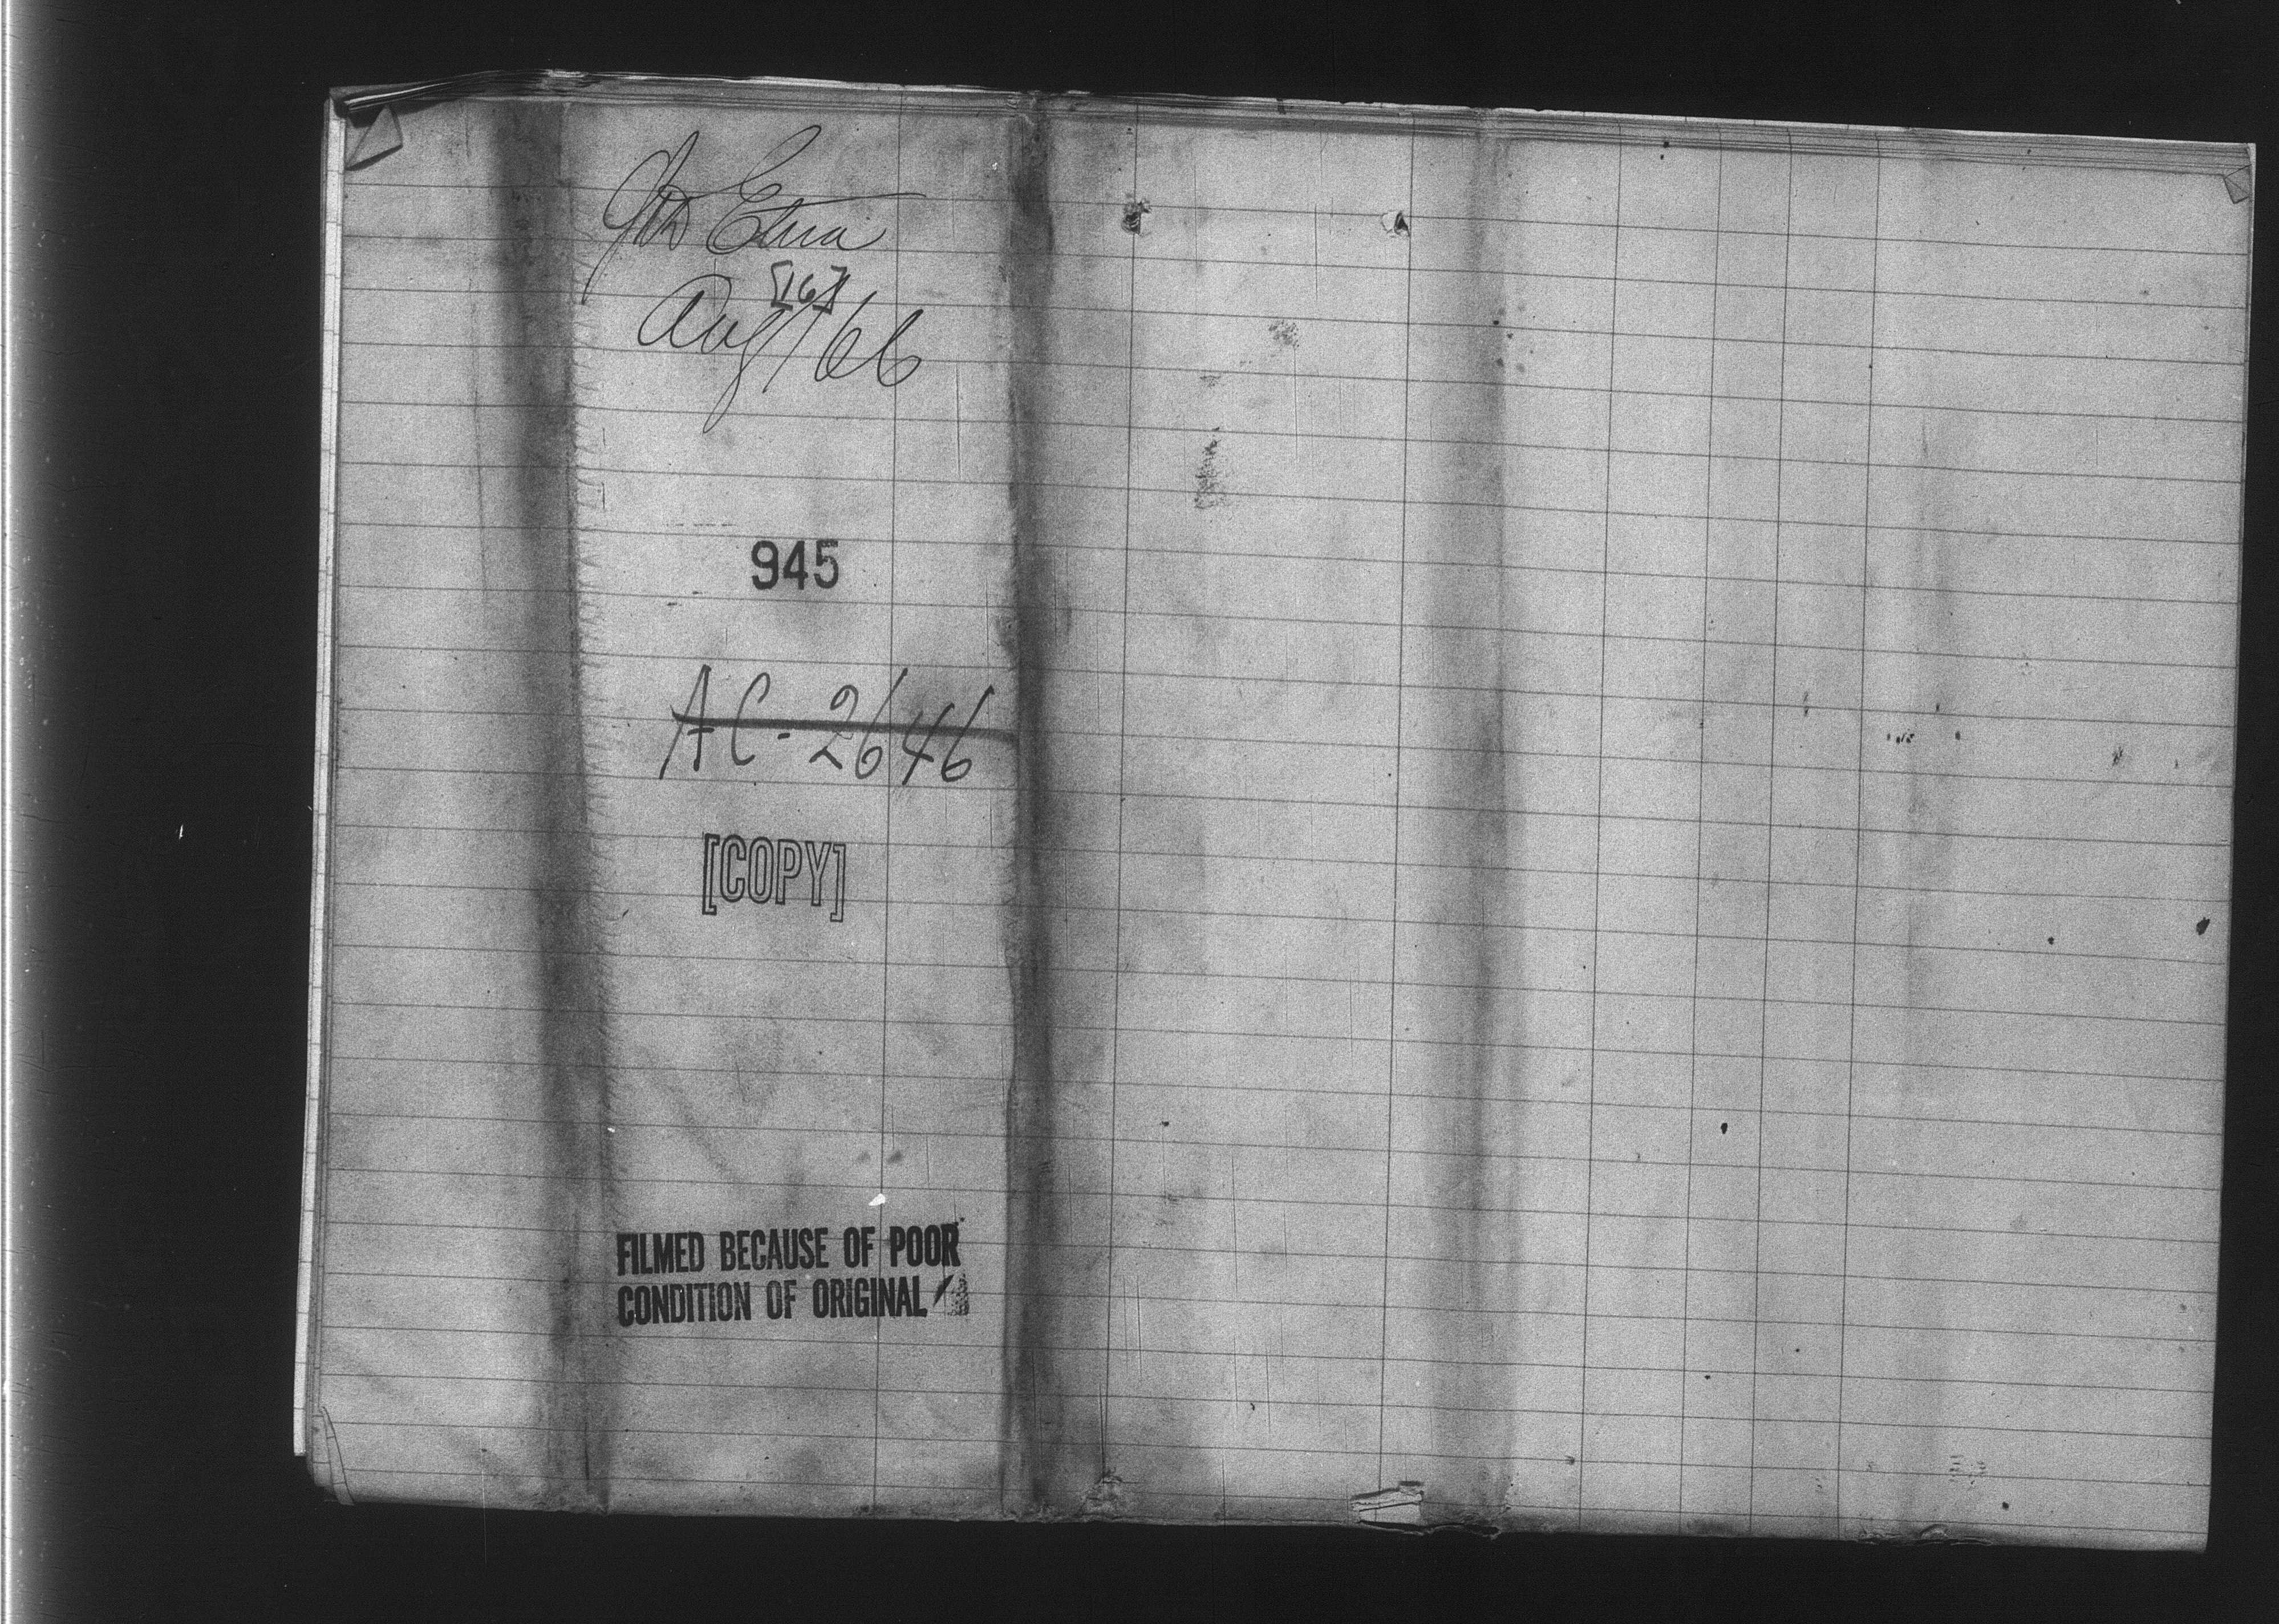 Etna
[16]
Aug/66
945
AC-2646
[COPY]
FILMED BECAUSE OF POOR
CONDITION OF ORIGINAL